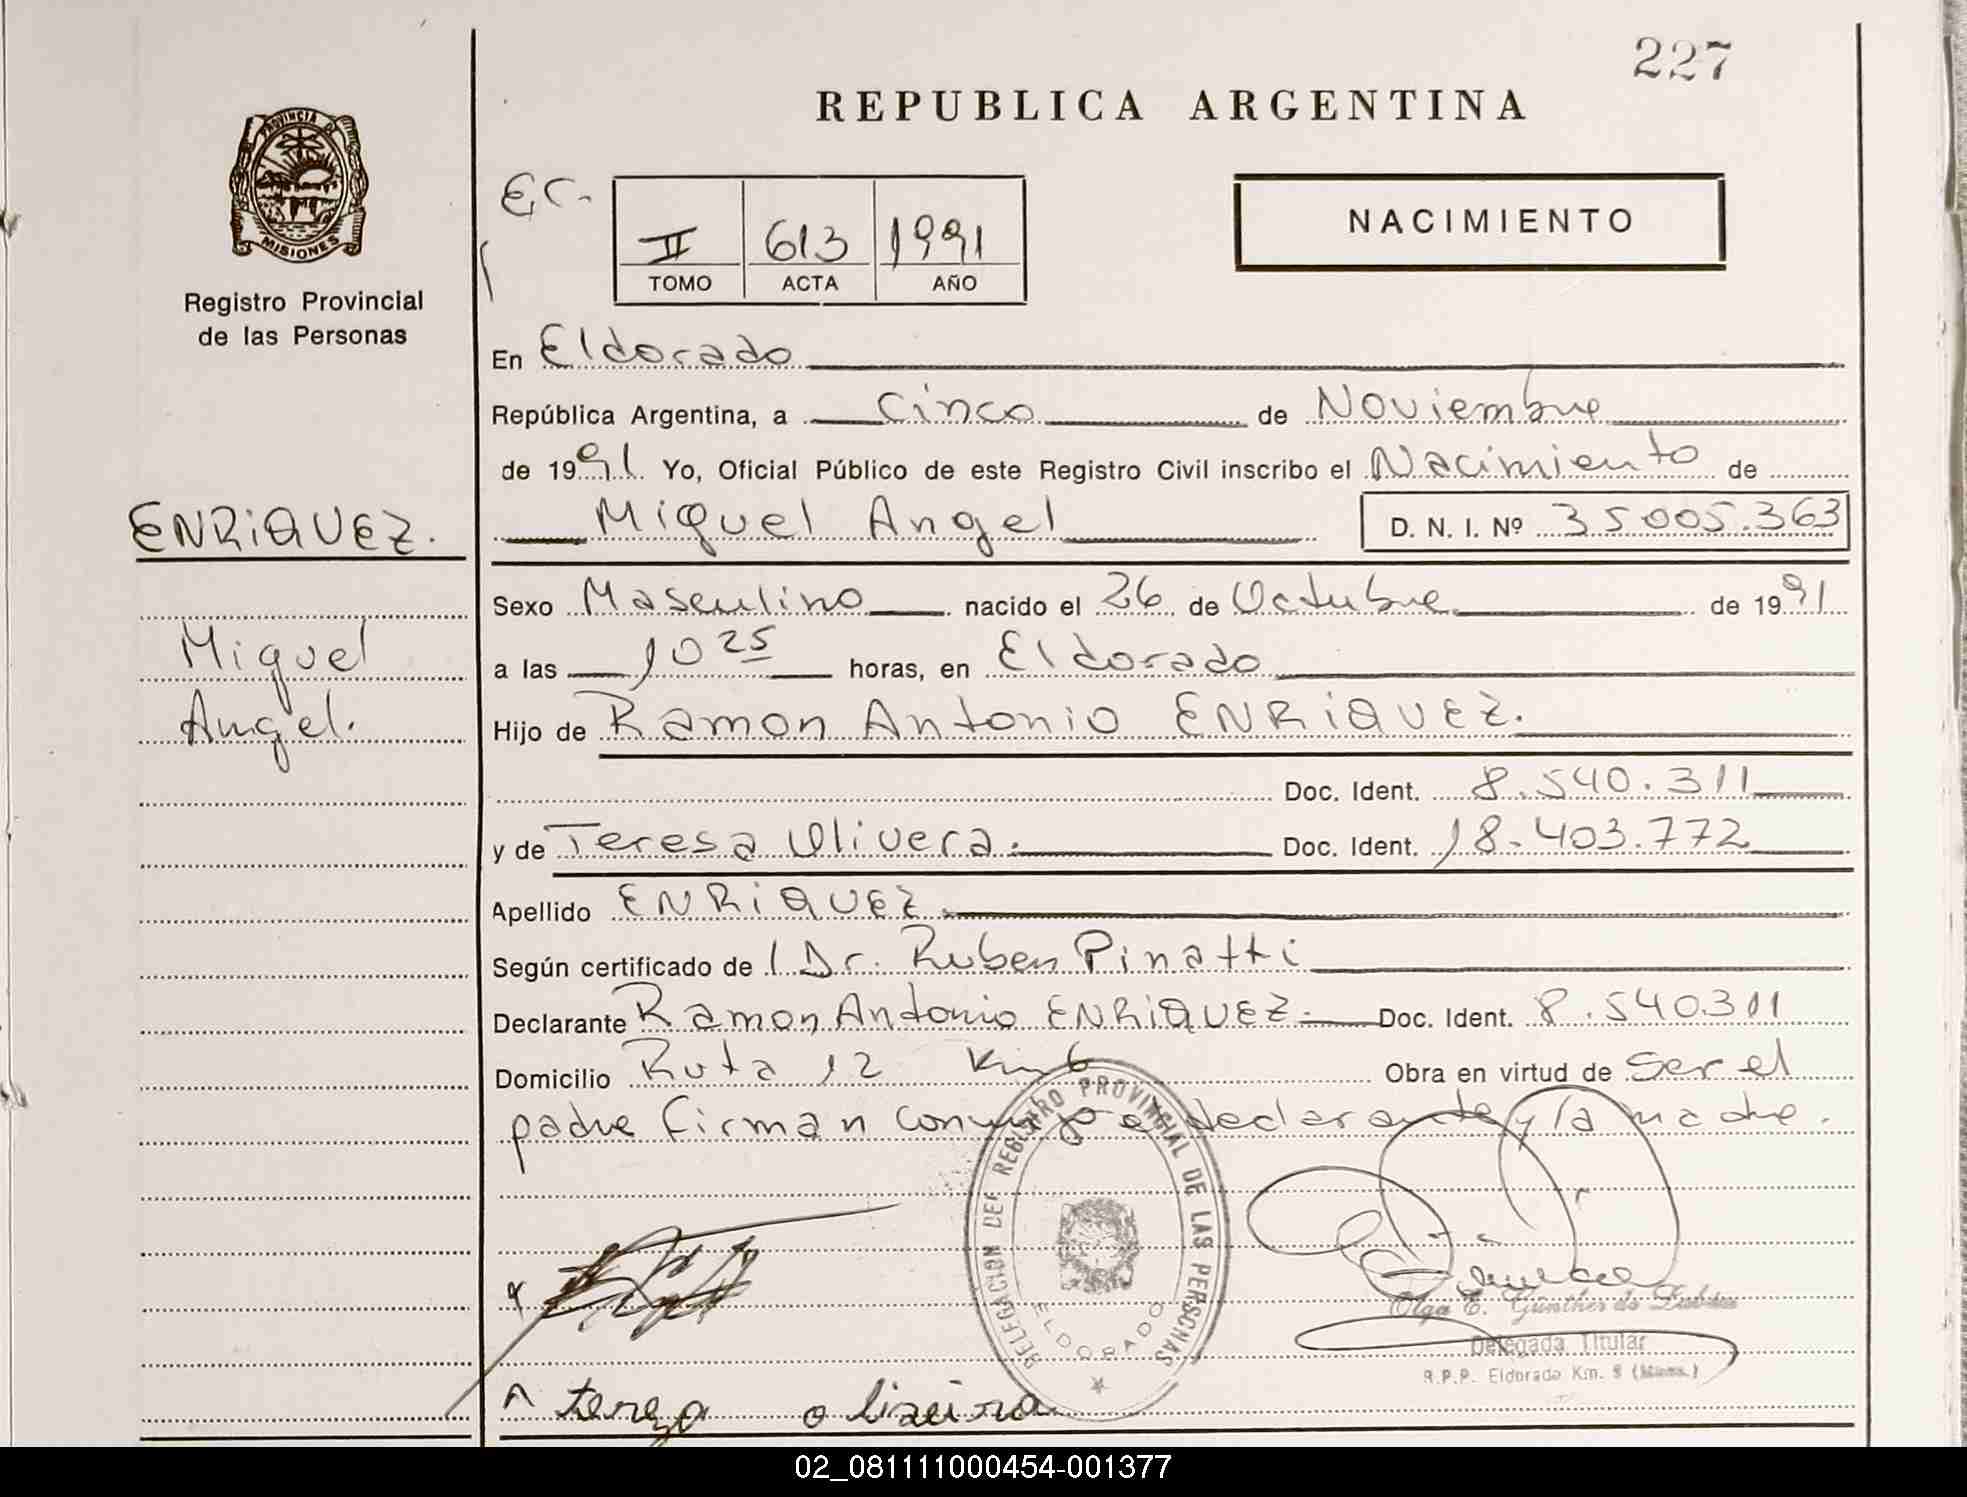 227
REPUBLICA ARGENTINA
PROVINCIA DE
MISIONES
Registro Provincial
de las Personas
EC.
II 613 1991
TOMO ACTA AÑO
NACIMIENTO
En Eldorado
República Argentina, a Cinco de Noviembre
de 1991 Yo, Oficial Público de este Registro Civil inscribo el Nacimiento de
ENRIQUEZ.
Miguel Angel D. N. I. Nº 35005.363
Sexo Masculino nacido el 26 de Octubre de 1991
Miguel
a las 10 25 horas, en Eldorado
Angel.
Hijo de Ramon Antonio ENRIQUEZ.
Doc. Ident. 8.540.311
y de Teresa Olivera. Doc. Ident. 18.403.772
Apellido ENRIQUEZ
Según certificado de l Dr. Ruben Pinatti
Declarante Ramon Antonio ENRIQUEZ. Doc. Ident. 8.540311
Domicilio Ruta 12 Km 6 Obra en virtud de ser el
padre firman conmigo el declarante y la madre.
DELEGACION DEL REGISTRO PROVINCIAL DE LAS PERSONAS
ELDORADO
Olga E. Günther de
Delegada Titular
R.P.P. Eldorado Km. 9 (Mnes.)
tereza olixeira
02_081111000454-001377